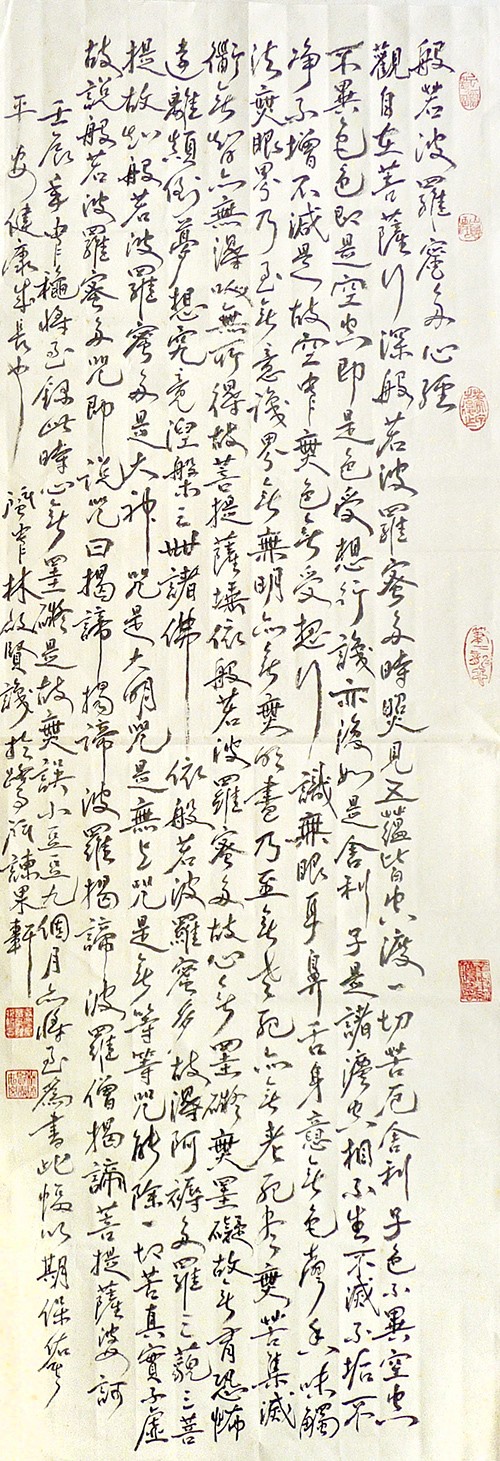 般若波羅蜜多心經
觀自在菩薩行深般若波羅蜜多時照見五蘊皆空渡一切苦厄舍利子色不異空空
不異色色即是空空即是色受想行識亦復如是舍利子是諸法空相不生不滅不垢不
淨不增不減是故空中無色無受想行識無眼耳鼻舌身意無色聲香味觸
法無眼界乃至無意識界無無明亦無無明盡乃至無老死亦無老死盡無苦集滅
衟無智亦無得以無所得故菩提薩埵依般若波羅蜜多故心無罣礙無罣礙故無有恐怖
遠離顛倒夢想究竟涅槃三世諸佛依般若波羅蜜多故得阿耨多羅三藐三菩
提故知般若波羅蜜多是大神咒是大明咒是無上咒是無等等咒能除一切苦真實不虛
故說般若波羅蜜多咒即說咒曰揭諦揭諦波羅揭諦波羅僧揭諦菩提薩婆訶
壬辰年中穐將至錄此時心無罣礙是故無誤小豆豆九個月亦將至為書此幅以期保佑
平安健康成長也 中林啟賢識於諫果軒